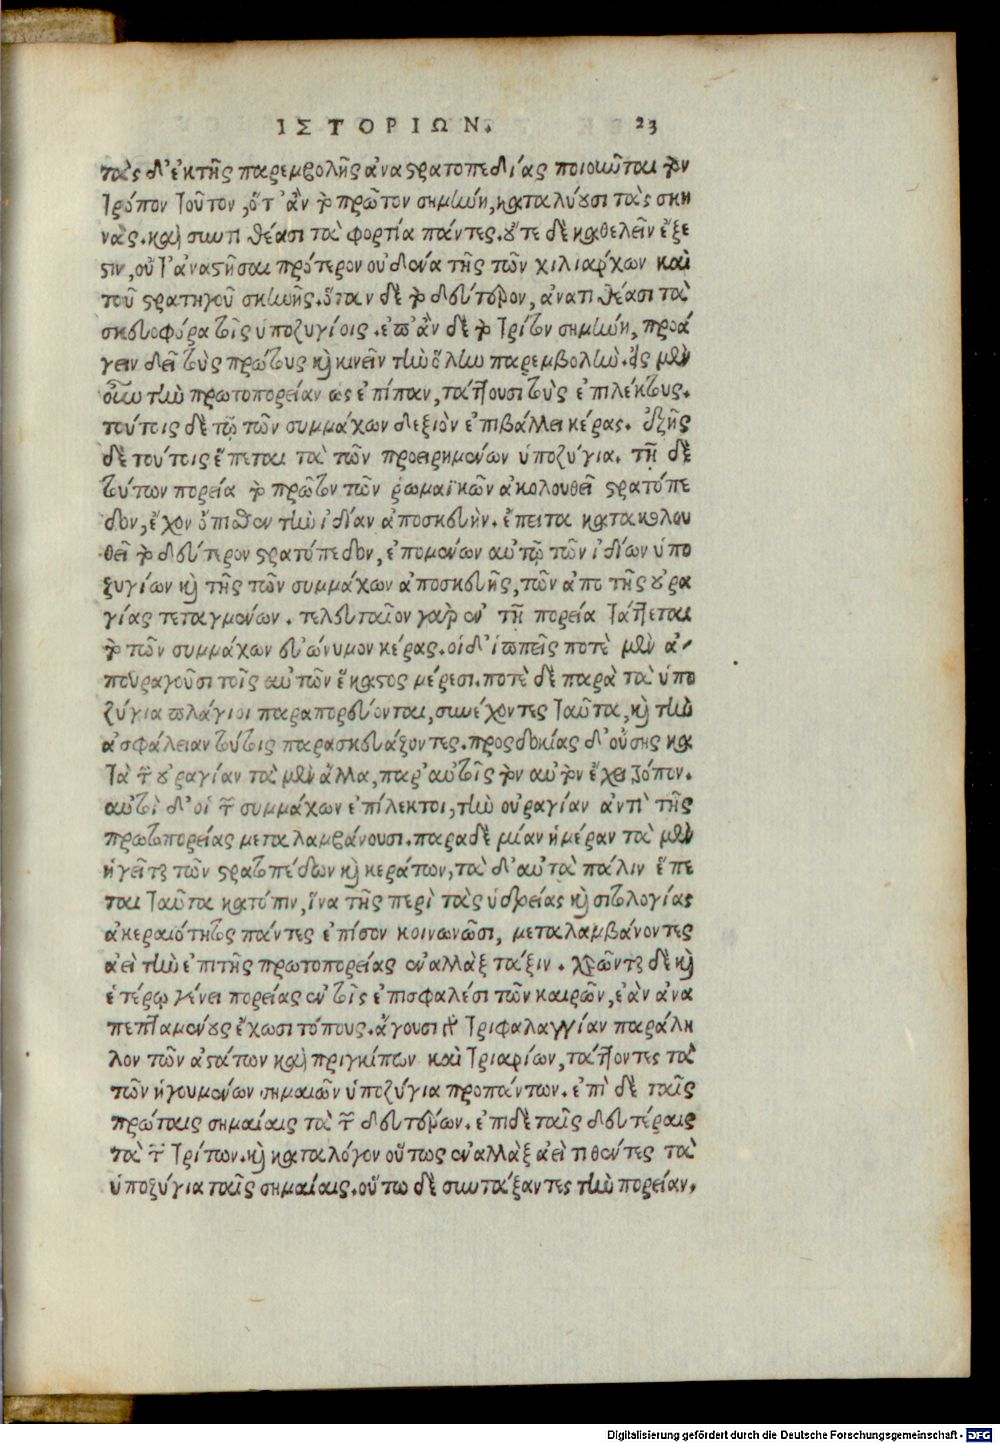 ΙΣΤΟΡΙΩΝ. 23
τὰς δ' ἐκ τῆς παρεμβολῆς ἀναστρατοπεδίας ποιοῦνται τὸν
τρόπον τοῦτον, ὅτ' ἂν τὸ πρῶτον σημήνῃ, καταλύουσι τὰς σκη
νὰς. καὶ συντιθέασι τὰ φορτία πάντες. οὔτε δὲ καθελεῖν ἔξε
στιν, οὔτ' ἀναστῆσαι πρότερον οὐδένα τῆς τῶν χιλιάρχων καὶ
τοῦ στρατηγοῦ σκηνῆς. ὅταν δὲ τὸ δεύτερον, ἀνατιθέασι τὰ
σκευοφόρα τοῖς ὑποζυγίοις. ἐπ' ἂν δὲ τὸ τρίτον σημήνῃ, προά
γειν δεῖ τοὺς πρώτους καὶ κινεῖν τὴν ὅλην παρεμβολήν. εἰς μὲν
οὖν τὴν πρωτοπορείαν ὡς ἐπίπαν, τάττουσι τοὺς ἐπιλέκτους.
τούτοις δὲ τὸ τῶν συμμάχων δεξιὸν ἐπιβάλλει κέρας. ἑξῆς
δὲ τούτοις ἕπεται τὰ τῶν προειρημένων ὑποζύγια. τῇ δὲ
τούτων πορεία τὸ πρῶτον τῶν ῥωμαϊκῶν ἀκολουθεῖ στρατόπε
δον, ἔχον ὄπισθεν τὴν ἰδίαν ἀποσκευὴν. ἔπειτα κατακολου
θεῖ τὸ δεύτερον στρατόπεδον, ἑπομένων αὐτῷ τῶν ἰδίων ὑπο
ζυγίων καὶ τῆς τῶν συμμάχων ἀποσκευῆς, τῶν ἀπὸ τῆς οὐρα
γίας τεταγμένων. τελευταῖον γὰρ ἐν τῇ πορεία τάττεται
τὸ τῶν συμμάχων εὐώνυμον κέρας. οἱ δ' ἱππεῖς ποτὲ μὲν ἀ-
πουραγοῦσι τοῖς αὐτῶν ἕκαστος μέρεσι. ποτὲ δὲ παρὰ τὰ ὑπο
ζύγια πλάγιοι παραπορεύονται, συνέχοντες ταῦτα, καὶ τὴν
ἀσφάλειαν τούτοις παρασκευάζοντες. προσδοκίας δ' οὔσης κα
τὰ τὴν οὐραγίαν τὰ μὲν ἄλλα, παρ' αὐτοῖς τὸν αὐτὸν ἔχει τρόπον.
αὐτοὶ δ' οἱ τῶν συμμάχων ἐπίλεκτοι, τὴν οὐραγίαν ἀντὶ τῆς
πρωτοπορείας μεταλαμβάνουσι. παρὰ δὲ μίαν ἡμέραν τὰ μὲν
ἡγεῖται τῶν στρατοπέδων καὶ κεράτων, τὰ δ' αὐτὰ πάλιν ἕπε
ται ταῦτα κατόπιν, ἵνα τῆς περὶ τὰς ὑδρείας καὶ σιτολογίας
ἀκεραιότητος πάντες ἐπίσον κοινωνῶσι, μεταλαμβάνοντες
ἀεὶ τὴν ἐπὶ τῆς πρωτοπορείας ἐναλλὰξ τάξιν. χρῶνται δὲ καὶ
ἑτέρῳ γένει πορείας ἐν τοῖς ἐπισφαλέσι τῶν καιρῶν, ἐὰν ἀνα
πεπταμένους ἔχωσι τόπους. ἄγουσι γὰρ τριφαλαγγίαν παράλη
λον τῶν ἁστάτων καὶ πριγκίπων καὶ τριαρίων, τάττοντες τὰ
τῶν ἡγουμένων σημαιῶν ὑποζύγια πρὸ πάντων. ἐπὶ δὲ ταῖς
πρώταις σημαίαις τὰ τῶν δευτέρων. ἐπὶ δὲ ταῖς δευτέραις
τὰ τῶν τρίτων. καὶ κατα λόγον οὕτως ἐναλλὰξ ἀεὶ τιθέντες τὰ
ὑποζύγια ταῖς σημαίαις. οὕτω δὲ συντάξαντες τὴν πορείαν,
Digitalisierung gefördert durch die Deutsche Forschungsgemeinschaft - DFG